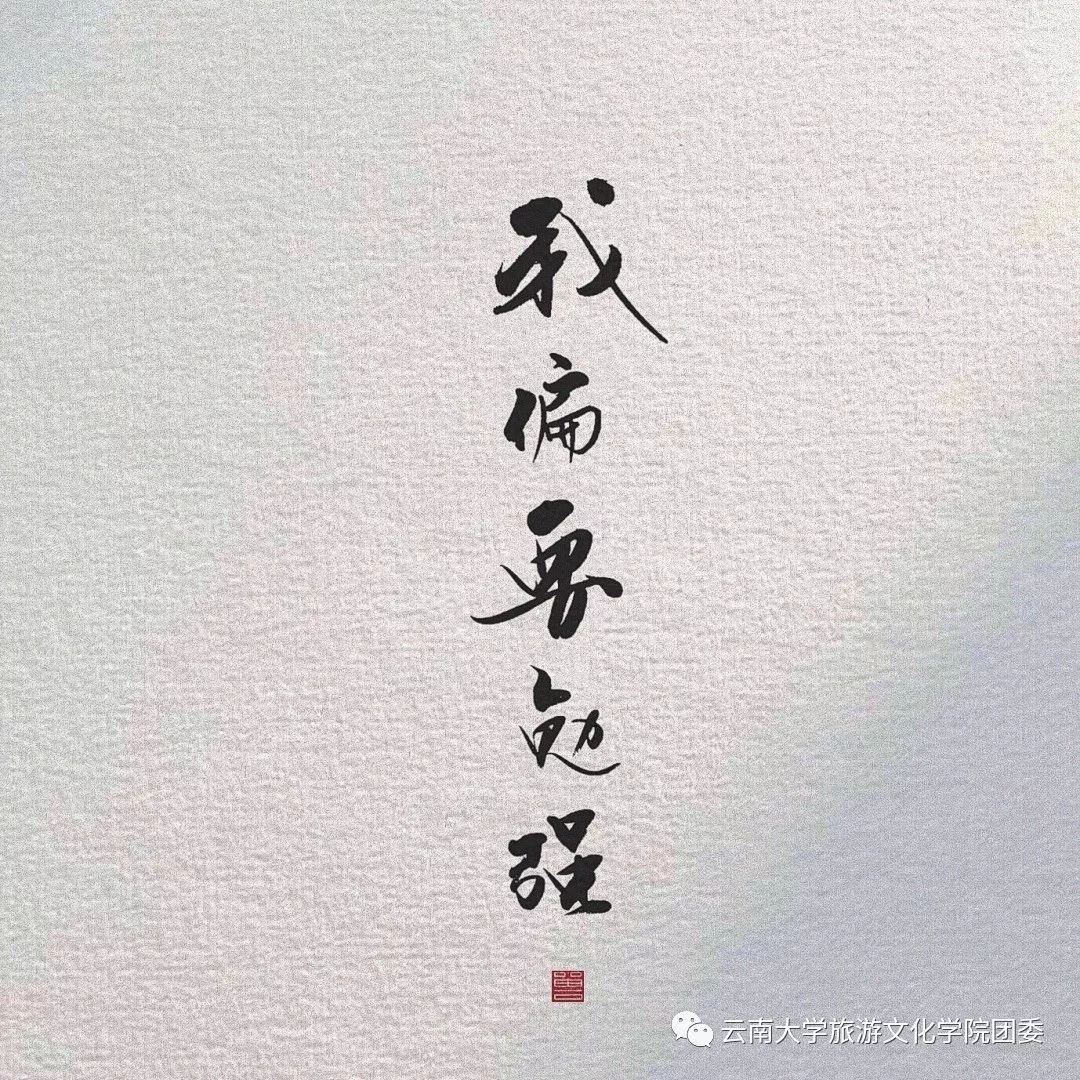 我偏要勉强
云南大学旅游文化学院团委